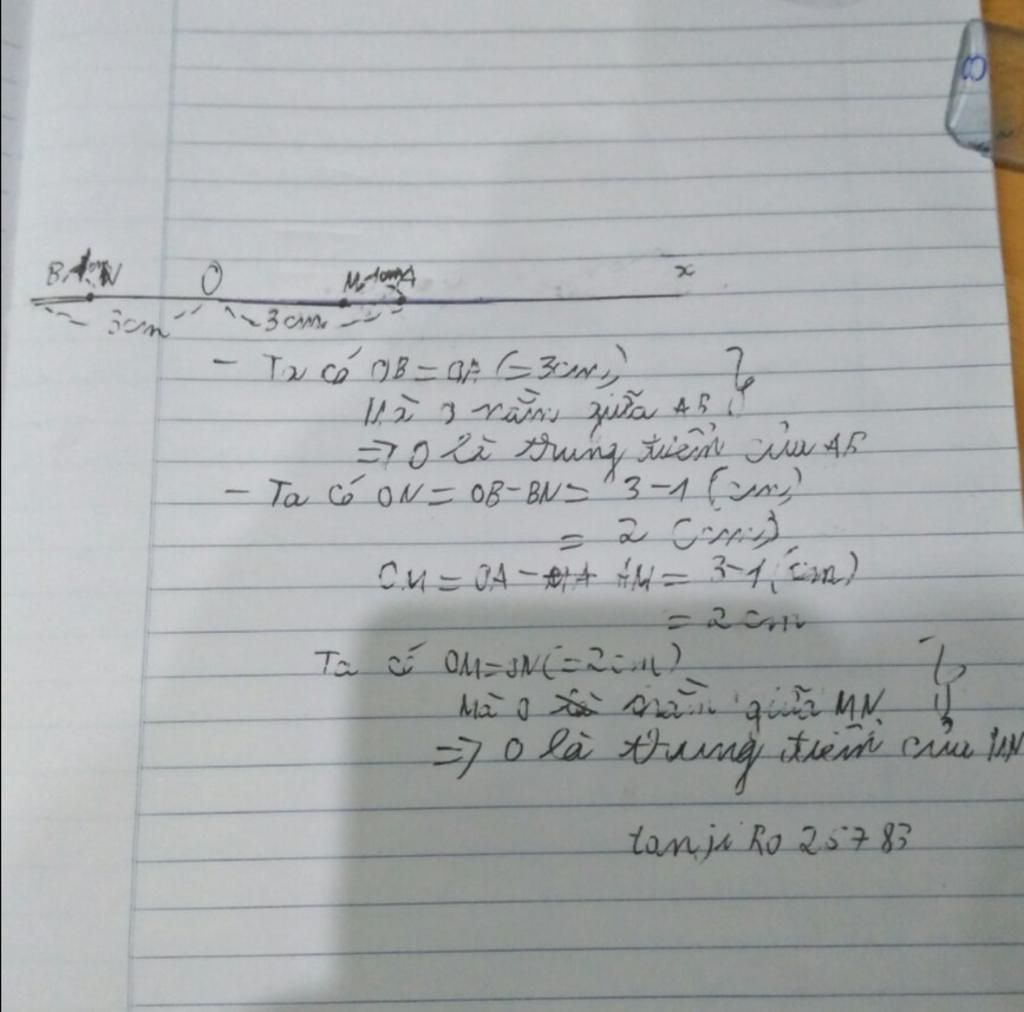 B 1cm N O M 1cm A x
3cm 3cm
- Ta có OB = OA (= 3cm)
Mà O nằm giữa AB
=> O là trung điểm của AB
- Ta có ON = OB - BN = 3 - 1 (cm)
= 2 (cm)
OM = OA - AM = 3 - 1 (cm)
= 2 cm
Ta có OM = ON (= 2cm)
Mà O nằm giữa MN
=> O là trung điểm của MN
tanjiRo 25783